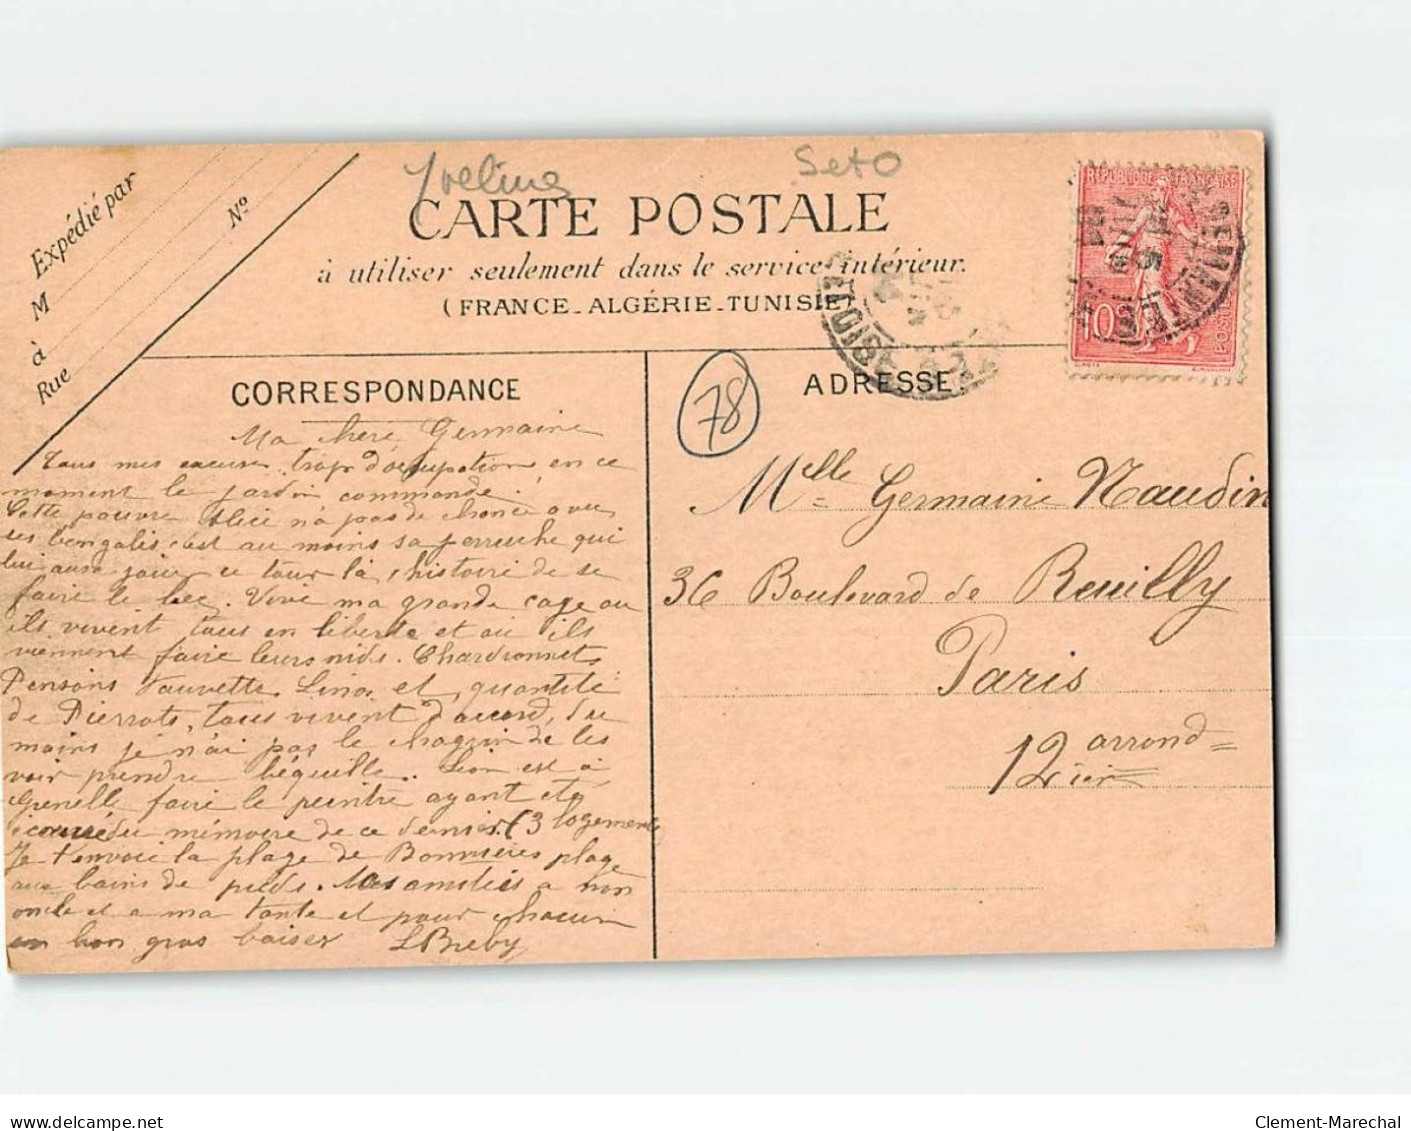 Yvelines
Seto
Expédié par
Nº
M
à
Rue
CARTE POSTALE
à utiliser seulement dans le service intérieur.
(FRANCE-ALGÉRIE-TUNISIE)
RÉPUBLIQUE FRANÇAISE
10
POSTES
CORRESPONDANCE
78
ADRESSE
Ma chere Germaine
Tous mes excuses, trop d'occupation en ce
moment le jardin commande.
Cette pauvre Alice n'a pas de chance avec
ses bengalis c'est au moins sa perruche qui
lui aura joué ce tour là, histoire de se
faire le bec. Vive ma grande cage ou
ils vivent tous en liberté et ou ils
viennent faire leurs nids. Chardonnets
Pensons Fauvette Linos et quantité
de Pierrots, tous vivent d'accord, du
moins je n'ai pas le chagrin de les
voir prendre béquille.. Léon est à
Grenelle faire le peintre ayant été
du mémoire de ce dernier. (3 logements
Je t'envoie la plage de Bonnières plage
aux bains de pieds. Mes amitiés a mon
oncle et a ma tante et pour chacun
un bon gros baiser LBreby
Melle Germaine Naudin
36 Boulevard de Reuilly
Paris
12 arrond
ier
Clement-Marechal